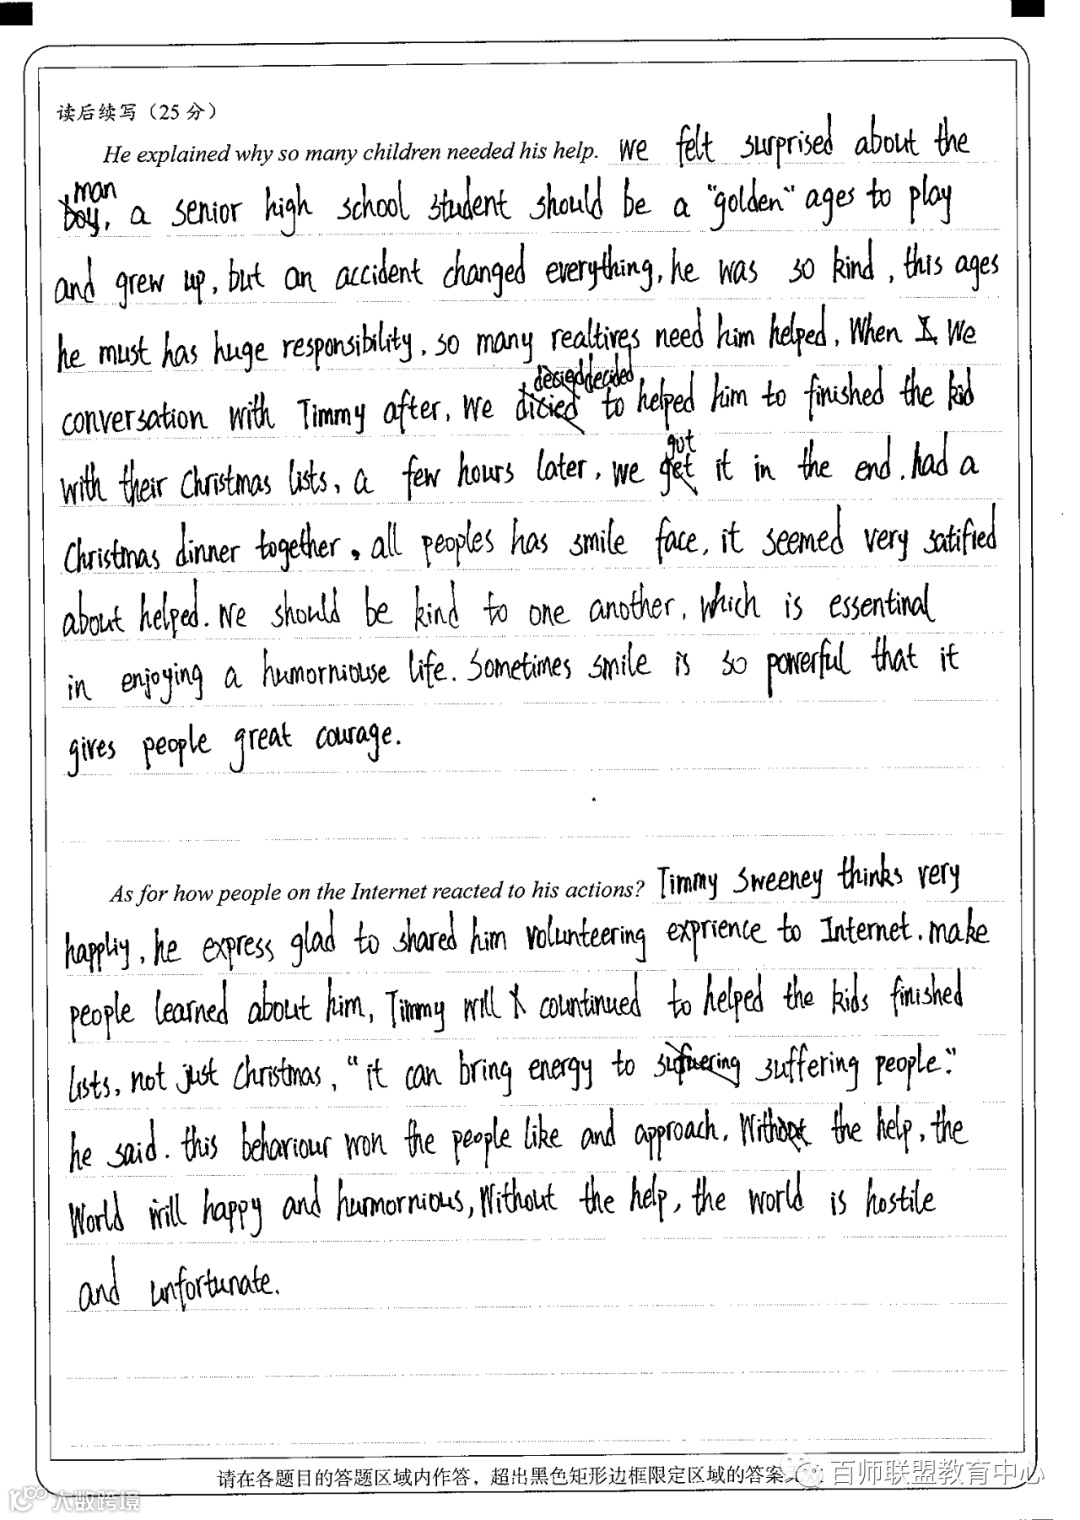 读后续写（25分）
He explained why so many children needed his help. We felt surprised about the
man
boy, a senior high school student should be a "golden" ages to play
and grew up, but an accident changed everything, he was so kind, this ages
he must has huge responsibility. so many realtives need him helped. When I We
desied decided
conversation with Timmy after, We dicied to helped him to finished the kid
got
with their Christmas lists, a few hours later, we get it in the end. had a
Christmas dinner together. all peoples has smile face, it seemed very satified
about helped. We should be kind to one another, which is essentinal
in enjoying a humorniouse life. Sometimes smile is so powerful that it
gives people great courage.
As for how people on the Internet reacted to his actions? Timmy Sweeney thinks very
happliy, he express glad to shared him volunteering exprience to Internet. make
people learned about him, Timmy will countinued to helped the kids finished
lists, not just Christmas, "it can bring energy to suffering people."
he said. this behaviour won the people like and approach. Without the help, the
World will happy and humornious, Without the help, the world is hostile
and unfortunate.
请在各题目的答题区域内作答，超出黑色矩形边框限定区域的答案
百师联盟教育中心
大数跨境